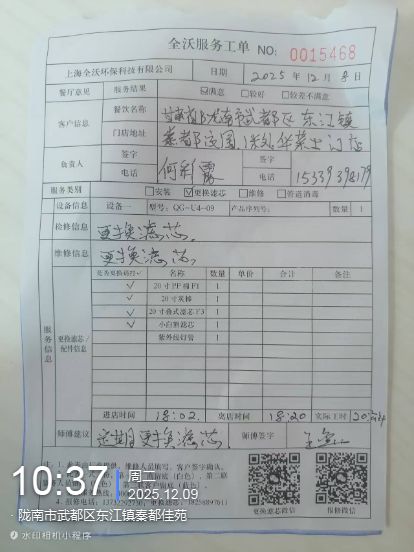 全沃服务工单 NO: 0015468
上海全沃环保科技有限公司 日期 2025年12月8日
餐厅意见 服务结果 ☑满意 □较好 □较差不满意
客户信息 餐饮名称 甘肃省陇南市武都区东江镇
门店地址
负责人 签字 签字
电话 何彩霞 电话
服务类别 □安装 ☑更换滤芯 □维修 □管道消毒
设备信息 设备一 型号: QG-U4-09 产品序列号: 数量 1
检修信息 更换滤芯.
维修信息 更换滤芯.
服务信息 更换滤芯/配件信息
是否更换码打√ 名称 数量 单价 合计 备注
√ 20寸PP棉F1 1
√ 20寸炭棒 1
√ 1
√ 小白阻滤芯 1
紫外线灯管 1
进店时间 18:02 离店时间 18:20 实际工时
师傅建议 定期更换滤芯. 师傅签字
更换滤芯微信 报修微信
10:37 周一
2025.12.09
陇南市武都区东江镇秦都佳苑
水印相机小程序